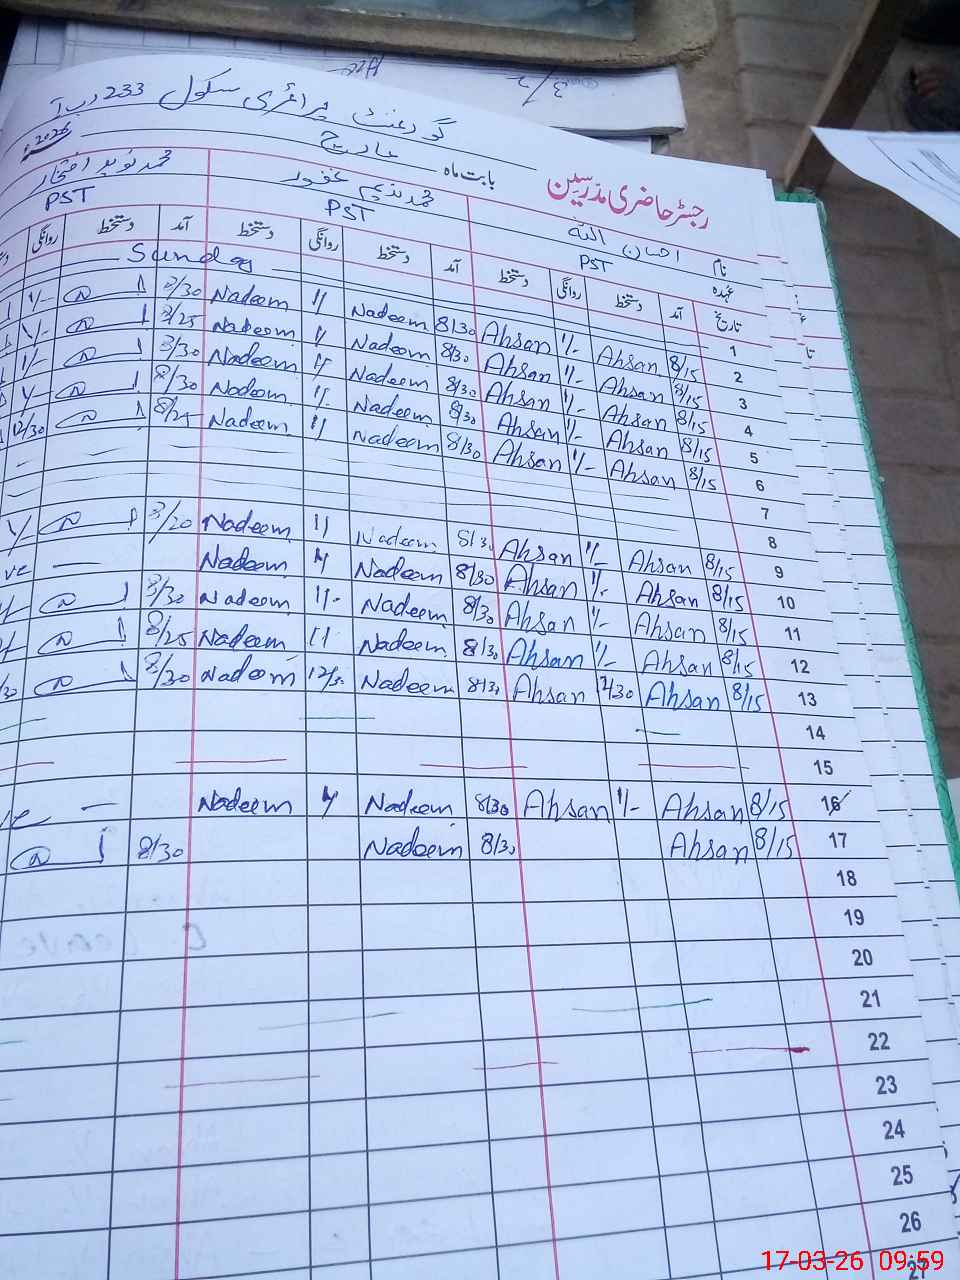 گورنمنٹ پرائمری سکول 233 ر ب آ
بابت ماہ مارچ 2026ء
رجسٹر حاضری مدرسین
نام احسان اللہ محمد ندیم غفور محمد نوید افتخار
عہدہ PST PST PST
تاریخ آمد دستخط روانگی دستخط آمد دستخط روانگی دستخط آمد دستخط روانگی
1 Sunday
2 8/15 Ahsan 1/- Ahsan 8/30 Nadeem 11 Nadeem 8/30 1/-
3 8/15 Ahsan 1/- Ahsan 8/30 Nadeem 11 Nadeem 8/25 1/-
4 8/15 Ahsan 1/- Ahsan 8/30 Nadeem 11 Nadeem 8/30 1/-
5 8/15 Ahsan 1/- Ahsan 8/30 Nadeem 11 Nadeem 8/30 1/-
6 8/15 Ahsan 1/- Ahsan 8/30 Nadeem 11 Nadeem 8/25 12/30
7
8
9 8/15 Ahsan 1/- Ahsan 8/30 Nadeem 11 Nadeem 8/20 1/
10 8/15 Ahsan 1/- Ahsan 8/30 Nadeem Nadeem — ve
11 8/15 Ahsan 1/- Ahsan 8/30 Nadeem 11- Nadeem 8/30
12 8/15 Ahsan 1/- Ahsan 8/30 Nadeem 11 Nadeem 8/25
13 8/15 Ahsan 12/30 Ahsan 8/30 Nadeem 12/30 Nadeem 8/30 /30
14
15
16 8/15 Ahsan 1/- Ahsan 8/30 Nadeem Nadeem — ve
17 8/15 Ahsan 8/30 Nadeem 8/30
18
19
20
21
22
23
24
25
26
27
17-03-26 09:59